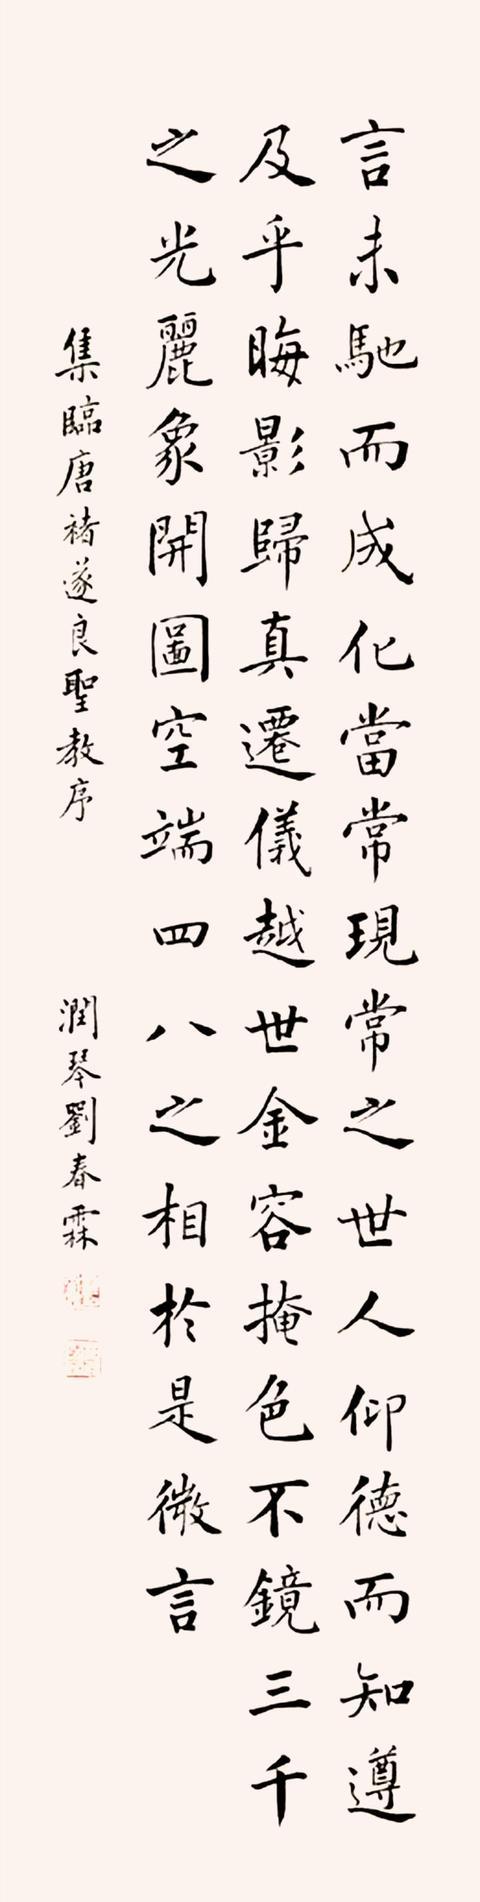 言未馳而成化當常現常之世人仰德而知遵
及乎晦影歸真遷儀越世金容掩色不鏡三千
之光麗象開圖空端四八之相於是微言
集臨唐褚遂良聖教序 潤琴劉春霖